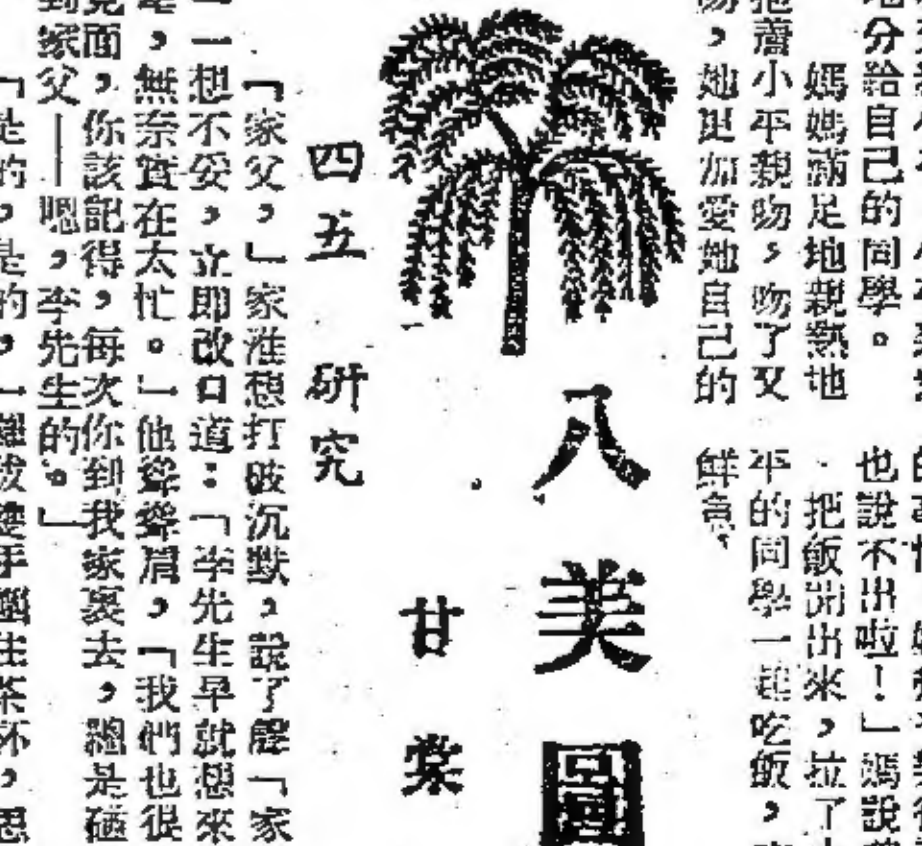 地分給自己的同學。
媽媽滿足地親熱地
小平親吻,吻了又
,她更加愛她自己的
也說不出啦!」媽說着
把飯開出來,拉了
平的同學一起吃飯,
鮮魚,
八美圖
甘棠
四五 研究
「家父,」家淮想打破沉默,說了聲「家
一想不妥,立即改口道:「李先生早就想來
,無奈實在太忙。」他聳聳肩,「我們也很
見面,你該記得,每次你到我家裏去,總是碰
到家父——嗯,李先生的。」
「是的,是的,」